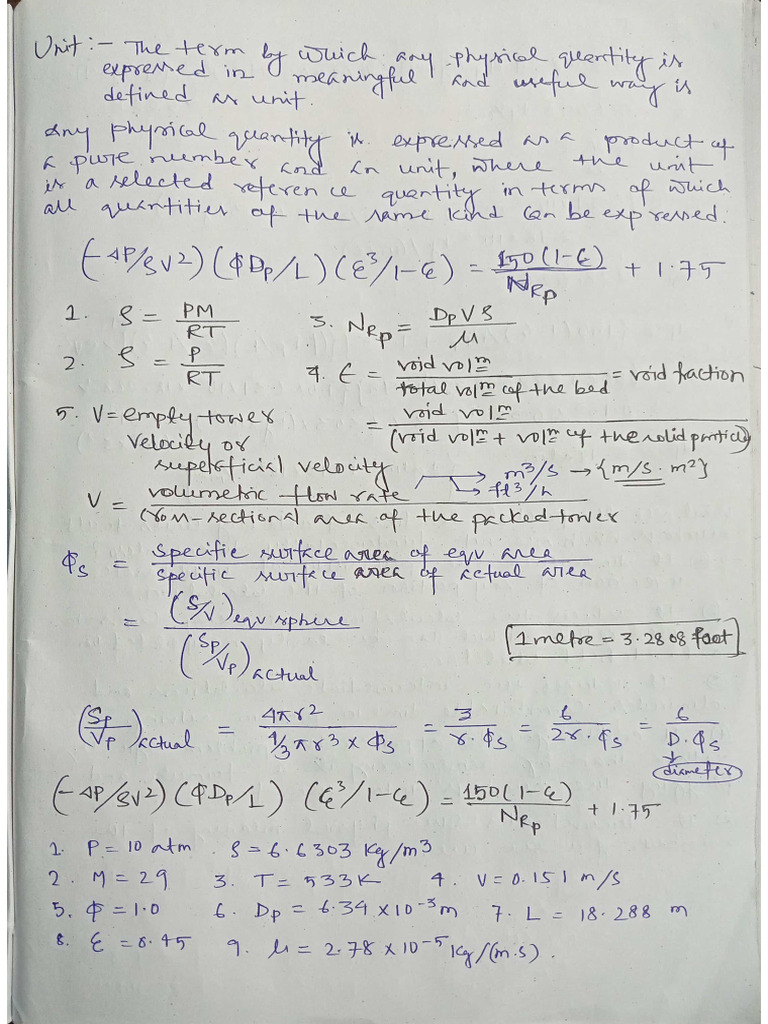 Unit :- The term by which any physical quantity is
expressed in meaningful and useful way is
defined as unit.
Any physical quantity is expressed as a product of
a pure number and an unit, where the unit
is a selected reference quantity in terms of which
all quantities of the same kind can be expressed.
(-ΔP/ρV2) (ΦDp/L) (ε³/1-ε) = 150(1-ε)/NRp + 1.75
1. ρ = PM/RT
3. NRp = DpVρ/μ
2. ρ = P/RT
4. ε = void volm/total volm of the bed = void fraction
= void volm/(void volm + volm of the solid particles)
5. V = empty tower
velocity or
superficial velocity
V = volumetric flow rate/cross-sectional area of the packed tower
→ m³/s → {m/s. m²}
→ ft³/h
Φs = Specific surface area of eqv area/Specific surface area of actual area
= (S/V)eqv sphere/(Sp/Vp)actual
1 metre = 3.2808 foot
(Sp/Vp)actual = 4πr²/4/3πr³ × Φs = 3/r.Φs = 6/2r.Φs = 6/D.Φs
diameter
(-ΔP/ρV2) (ΦDp/L) (ε³/1-ε) = 150(1-ε)/NRp + 1.75
1. P = 10 atm. ρ = 6.6303 Kg/m3
2. M = 29 3. T = 533K 4. V = 0.151 m/s
5. Φ = 1.0 6. Dp = 6.34 × 10-3 m 7. L = 18.288 m
8. ε = 0.45 9. μ = 2.78 × 10-5 Kg/(m.s).